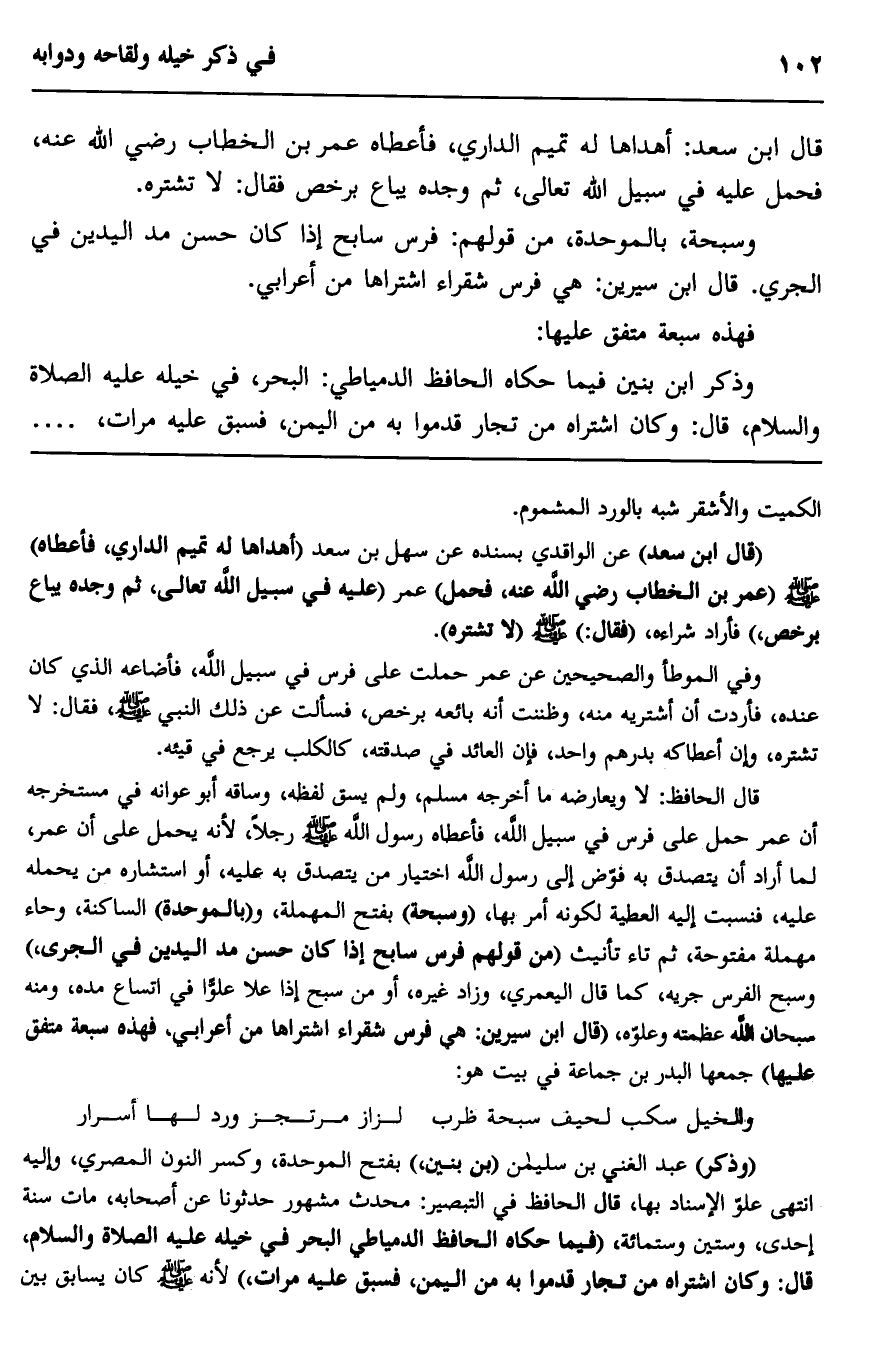 ١٠٢ في ذكر خيله ولقاحه ودوابه
قال ابن سعد: أهداها له تميم الداري، فأعطاه عمر بن الخطاب رضي الله عنه،
فحمل عليه في سبيل الله تعالى، ثم وجده يباع برخص فقال: لا تشتره.
وسبحة، بالموحدة، من قولهم: فرس سابح إذا كان حسن مد اليدين في
الجري. قال ابن سيرين: هي فرس شقراء اشتراها من أعرابي.
فهذه سبعة متفق عليها:
وذكر ابن بنين فيما حكاه الحافظ الدمياطي: البحر، في خيله عليه الصلاة
والسلام، قال: وكان اشتراه من تجار قدموا به من اليمن، فسبق عليه مرات، ....
الكميت والأشقر شبه بالورد المشموم.
(قال ابن سعد) عن الواقدي بسنده عن سهل بن سعد (أهداها له تميم الداري، فأعطاه)
ﷺ (عمر بن الخطاب رضي اللَّه عنه، فحمل) عمر (عليه في سبيل اللَّه تعالى، ثم وجده يباع
برخص،) فأراد شراءه، (فقال:) ﷺ (لا تشتره).
وفي الموطأ والصحيحين عن عمر حملت على فرس في سبيل اللَّه، فأضاعه الذي كان
عنده، فأردت أن أشتريه منه، وظننت أنه بائعه برخص، فسألت عن ذلك النبي ﷺ، فقال: لا
تشتره، وإن أعطاكه بدرهم واحد، فإن العائد في صدقته، كالكلب يرجع في قيئه.
قال الحافظ: لا ويعارضه ما أخرجه مسلم، ولم يسق لفظه، وساقه أبو عوانه في مستخرجه
أن عمر حمل على فرس في سبيل اللَّه، فأعطاه رسول اللَّه ﷺ رجلاً، لأنه يحمل على أن عمر،
لما أراد أن يتصدق به فوّض إلى رسول اللَّه اختيار من يتصدق به عليه، أو استشاره من يحمله
عليه، فنسبت إليه العطية لكونه أمر بها، (وسبحة) بفتح المهملة، و(بالموحدة) الساكنة، وحاء
مهملة مفتوحة، ثم تاء تأنيث (من قولهم فرس سابح إذا كان حسن مد اليدين في الجرى،)
وسبح الفرس جريه، كما قال اليعمري، وزاد غيره، أو من سبح إذا علا علوًّا في اتساع مده، ومنه
سبحان اللَّه عظمته وعلوّه، (قال ابن سيرين: هي فرس شقراء اشتراها من أعرابي، فهذه سبعة متفق
عليها) جمعها البدر بن جماعة في بيت هو:
والخيل سكب لحيف سبحة ظرب لـزاز مـرتـجـز ورد لـهـا أسـرار
(وذكر) عبد الغني بن سليمٰن (بن بنين،) بفتح الموحدة، وكسر النون المصري، وإليه
انتهى علوّ الإسناد بها، قال الحافظ في التبصير: محدث مشهور حدثونا عن أصحابه، مات سنة
إحدى، وستين وستمائة، (فيما حكاه الحافظ الدمياطي البحر في خيله عليه الصلاة والسلام،
قال: وكان اشتراه من تجار قدموا به من اليمن، فسبق عليه مرات،) لأنه ﷺ كان يسابق بين